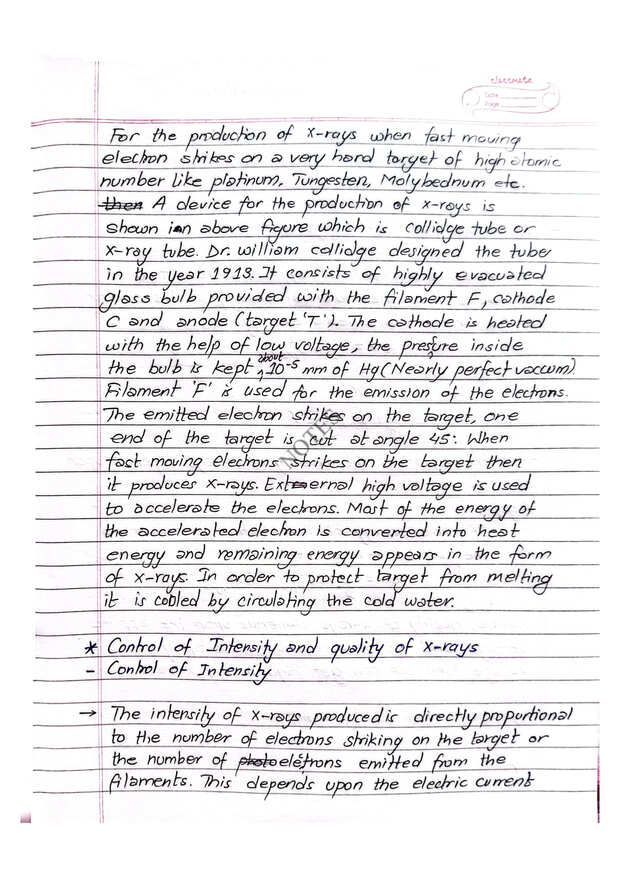 classmate
Date
Page
For the production of X-rays when fast moving
electron strikes on a very hard target of high atomic
number like platinum, Tungesten, Molybednum etc.
then A device for the production of x-rays is
shown in above figure which is collidge tube or
X-ray tube. Dr. william collidge designed the tube
in the year 1913. It consists of highly evacuated
glass bulb provided with the filament F, cathode
C and anode (target 'T'). The cathode is heated
with the help of low voltage, the pressure inside
the bulb is kept about 10-5 mm of Hg (Nearly perfect vaccum)
Filament 'F' is used for the emission of the electrons.
The emitted electron strikes on the target, one
end of the target is cut at angle 45°. When
fast moving electrons strikes on the target then
it produces X-rays. External high voltage is used
to accelerate the electrons. Most of the energy of
the accelerated electron is converted into heat
energy and remaining energy appears in the form
of X-rays. In order to protect target from melting
it is cooled by circulating the cold water.
* Control of Intensity and quality of X-rays
- Control of Intensity
→ The intensity of X-rays produced is directly proportional
to the number of electrons striking on the target or
the number of photoelectrons emitted from the
filaments. This depends upon the electric current
NOTES